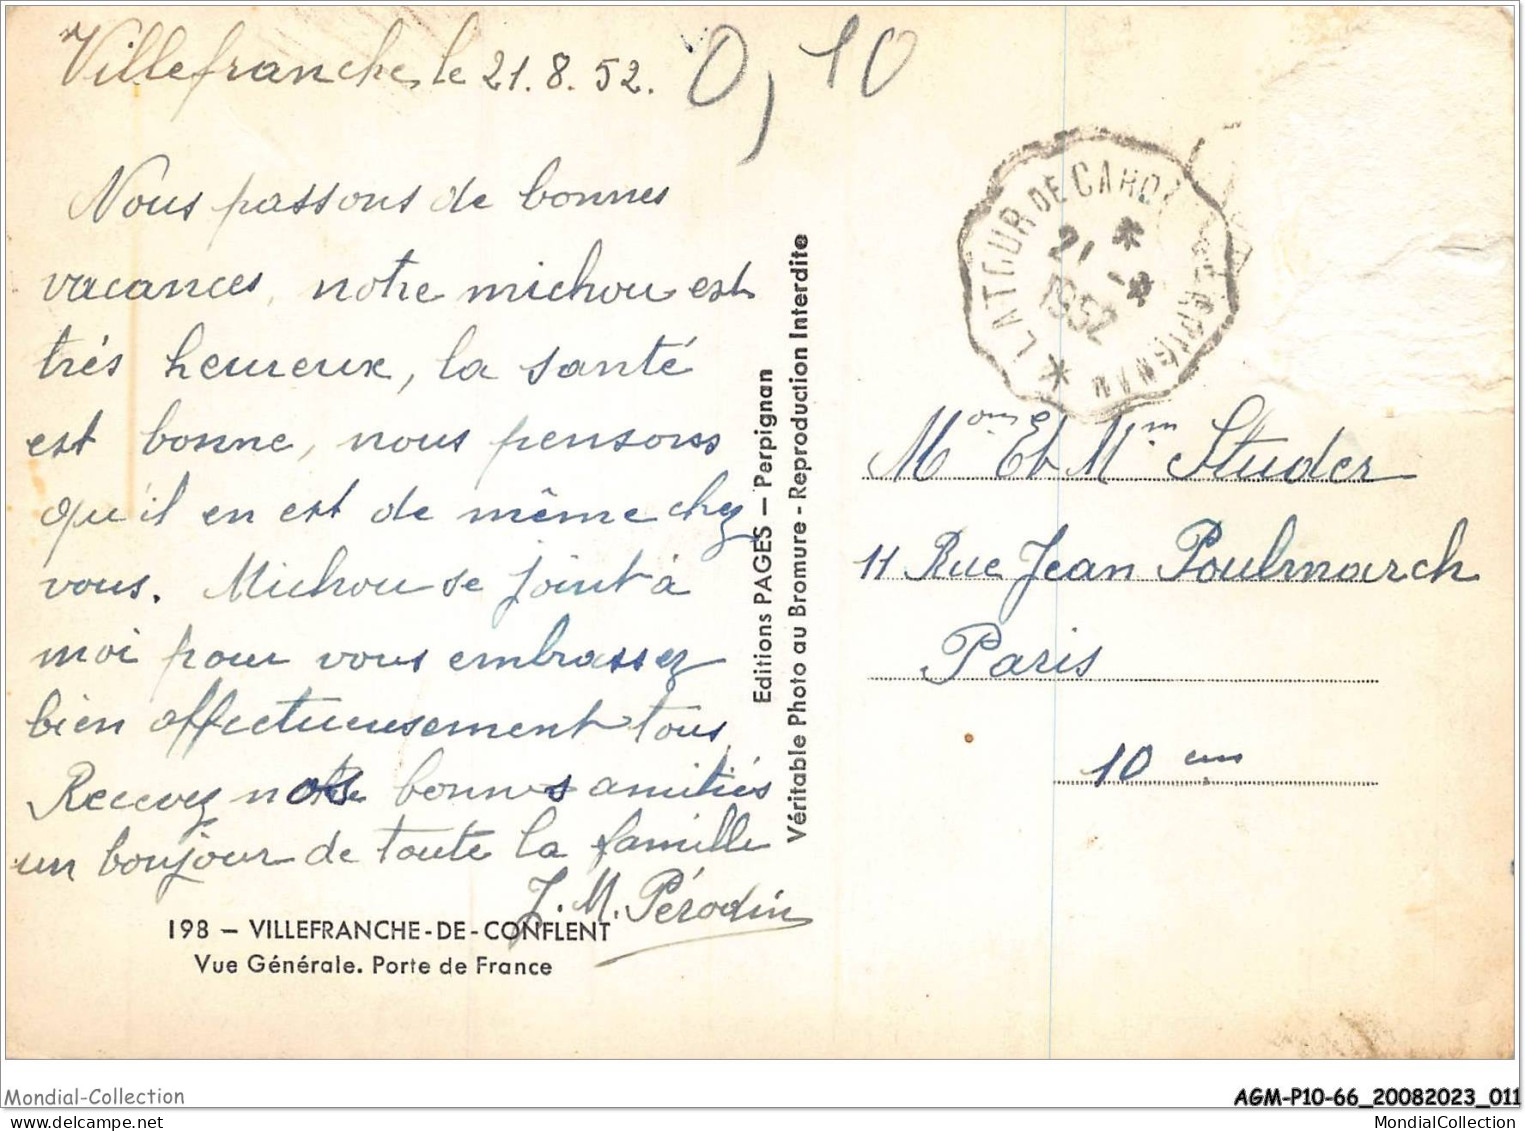 Villefranche, le 21.8.52.
0,10
Nous passons de bonnes
vacances, notre michou est
très heureux, la santé
est bonne, nous pensons
qu'il en est de même chez
vous. Michou se joint à
moi pour vous embrasser
bien affectueusement tous
Recevez nos bonnes amitiés
un bonjour de toute la famille
J. M. Pérodin
198 – VILLEFRANCHE-DE-CONFLENT
Vue Générale. Porte de France
Editions PAGES – Perpignan
Véritable Photo au Bromure - Reproduction Interdite
* LATOUR DE CAROL
PERPIGNAN
21 - 8
1952
Et Mm Studer
11 Rue Jean Poulmarch
Paris
10 em
Mondial-Collection
AGM-P10-66_20082023_011
MondialCollection